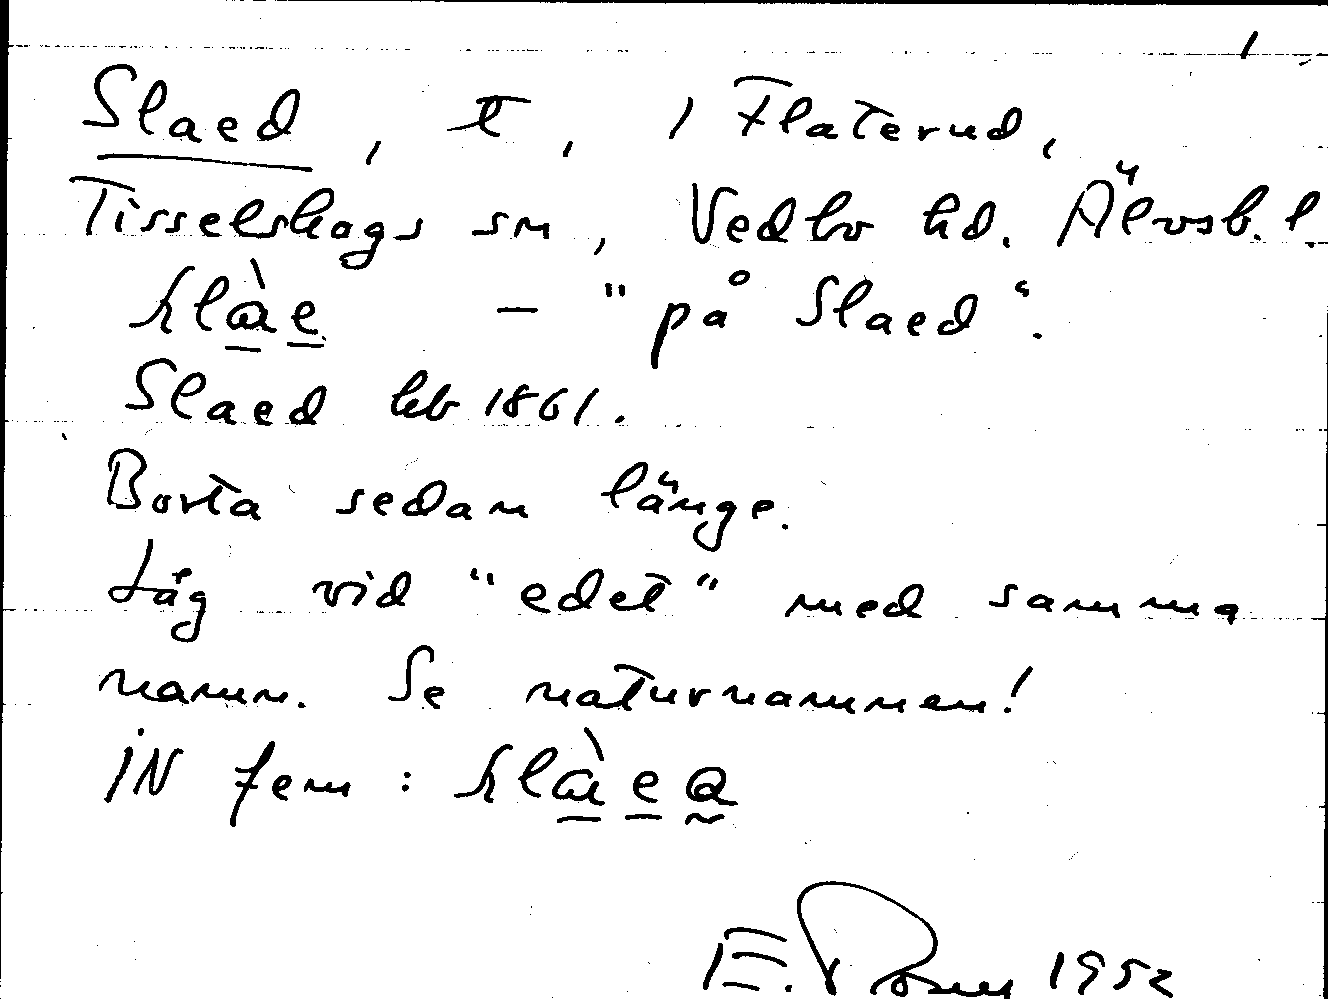 1
Slaed, t, i Flaterud,
Tisselskogs sn, Vedbo hd. Älvsb. l.
slàe – "på Slaed".
Slaed hb 1861.
Borta sedan länge.
Låg vid "edet" med samma
namn. Se naturnamnen!
IN fem : slàea
E. 1952